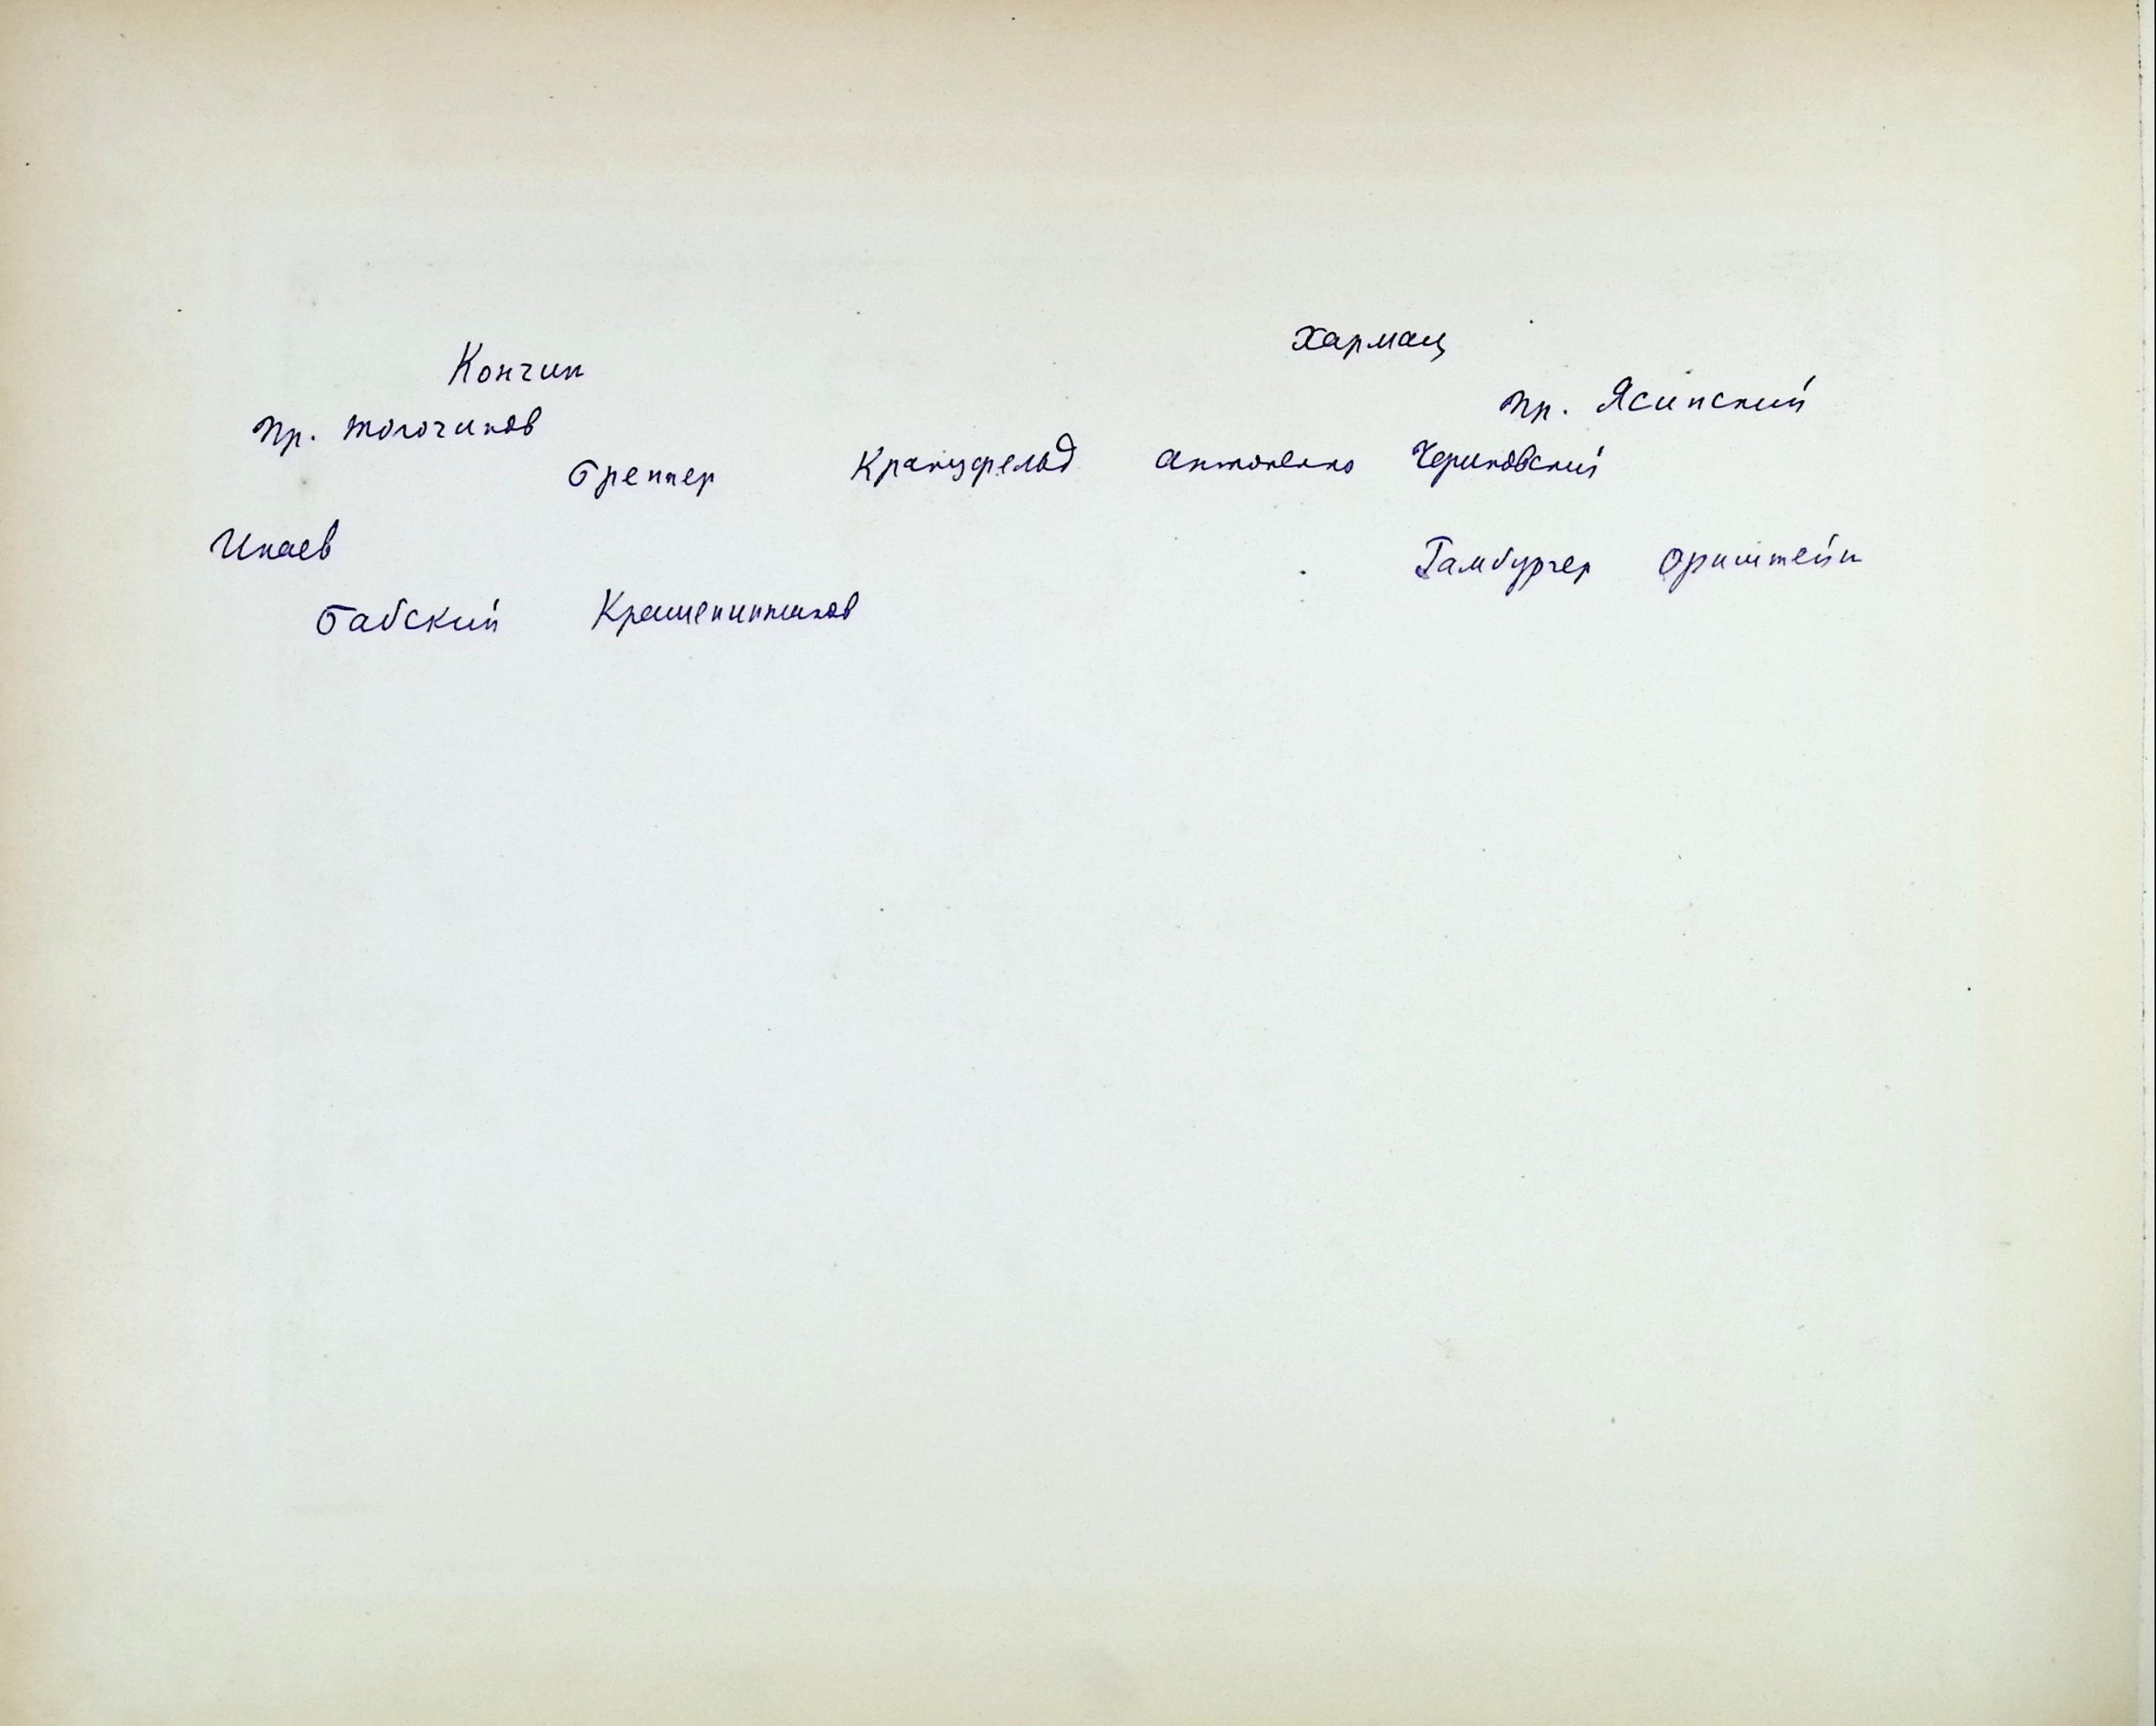 Кончин Хармац
Пр. Точочиков Пр. Ясинский
Бреннер Кранцфельд Антоненко Чериковский
Инаев Гамбургер Оринштейн
Бабский Крашенинников